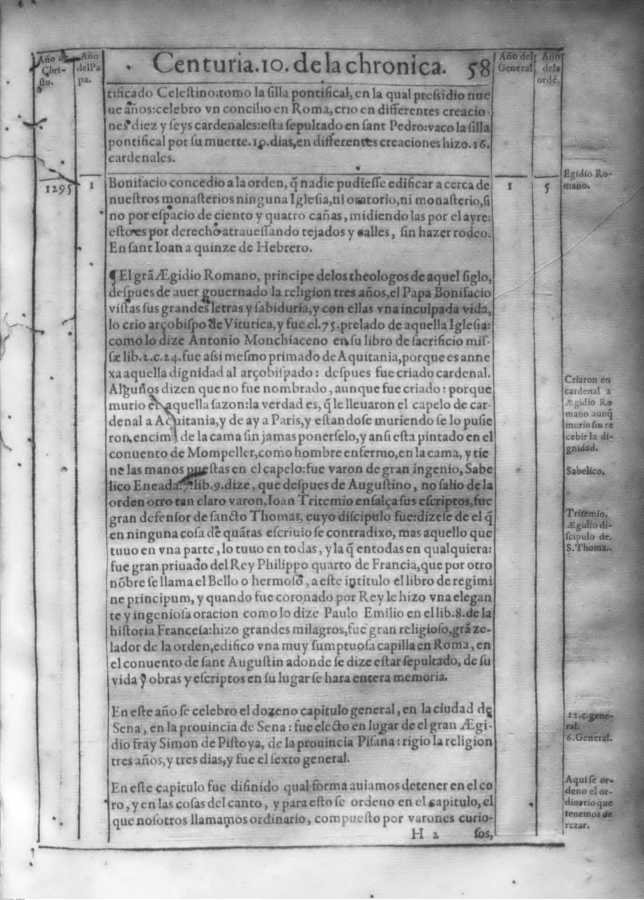 Año de Christo.
Año del Papa.
Centuria.10. de la chronica. 58
Año del General
Año de la orde.
tificado Celestino: tomo la silla pontifical, en la qual presidio nue
ue años: celebro vn concilio en Roma, crio en differentes creacio
nes diez y seys cardenales: esta sepultado en sant Pedro: vaco la silla
pontifical por su muerte.19. dias, en differentes creaciones hizo.16.
cardenales.
1295 1
Bonifacio concedio a la orden, q̃ nadie pudiesse edificar a cerca de
nuestros monasterios ninguna Iglesia, ni oratorio, ni monasterio, si
no por espacio de ciento y quatro cañas, midiendo las por el ayre:
esto es por derecho atrauessando tejados y calles, sin hazer rodeo.
En sant Ioan a quinze de Hebrero.
1 5
Egidio Romano.
¶ El grã Ægidio Romano, principe delos theologos de aquel siglo,
despues de auer gouernado la religion tres años, el Papa Bonifacio
vistas sus grandes letras y sabiduria, y con ellas vna inculpada vida,
lo crio arçobispo de Viturica, y fue el.75. prelado de aquella Iglesia:
como lo dize Antonio Monchiaceno en su libro de sacrificio mis-
sæ lib.2.c.24. fue asi mesmo primado de Aquitania, porque es anne
xa aquella dignidad al arçobispado: despues fue criado cardenal.
Algunos dizen que no fue nombrado, aunque fue criado: porque
murio en aquella sazon: la verdad es, q̃ le lleuaron el capelo de car-
denal a Aquitania, y de ay a Paris, y estandose muriendo se lo pusie
ron, encima de la cama sin jamas ponerselo, y ansi esta pintado en el
conuento de Mompeller, como hombre enfermo, en la cama, y tie
ne las manos puestas en el capelo: fue varon de gran ingenio, Sabe
lico Eneada.7. lib.9. dize, que despues de Augustino, no salio de la
orden otro tan claro varon, Ioan Tritemio ensalça sus escriptos, fue
gran defensor de sancto Thomas, cuyo discipulo fue: dizese de el q̃
en ninguna cosa de quãtas escriuio se contradixo, mas aquello que
tuuo en vna parte, lo tuuo en todas, y la q̃ en todas en qualquiera:
fue gran priuado del Rey Philippo quarto de Francia, que por otro
nõbre se llama el Bello o hermoso, a este intitulo el libro de regimi
ne principum, y quando fue coronado por Rey le hizo vna elegan
te y ingeniosa oracion como lo dize Paulo Emilio en el lib.8. de la
historia Francesa: hizo grandes milagros, fue gran religioso, grã ze-
lador de la orden, edifico vna muy sumptuosa capilla en Roma, en
el conuento de sant Augustin adonde se dize estar sepultado, de su
vida y obras y escriptos en su lugar se hara entera memoria.
Criaron en
cardenal a
Ægidio Ro
mano aunq̃
murio sin re
cebir la di-
gnidad.
Sabelico.
Tritemio.
Ægidio di-
scipulo de
S. Thomas.
En este año se celebro el dozeno capitulo general, en la ciudad de
Sena, en la prouincia de Sena: fue electo en lugar de el gran Ægi-
dio fray Simon de Pistoya, de la prouincia Pisana: rigio la religion
tres años, y tres dias, y fue el sexto general.
12.c.gene-
ral.
6.General.
En este capitulo fue difinido qual forma auiamos de tener en el co
ro, y en las cosas del canto, y para esto se ordeno en el capitulo, el
que nosotros llamamos ordinario, compuesto por varones curio-
Aqui se or-
deno el or-
dinario que
tenemos de
rezar.
H 2 sos,